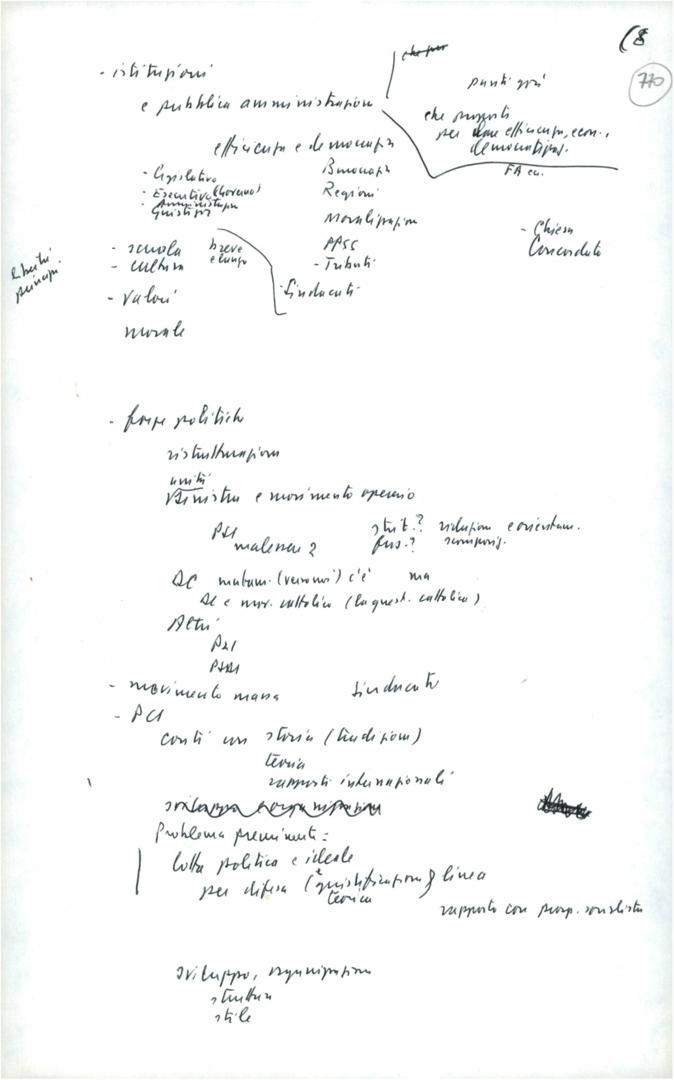 (8
770
- istituzioni
che per
punti gravi
e pubblica amministrazione
che proposti
per dare efficienza, econ.,
democratizzaz.
efficienza e democrazia
FA ecc.
- Legislativo
Burocrazia
- Esecutivo (Governo)
Regioni
- Amministrativa
Giustizia
Moralizzazione
- Chiesa
Concordato
- scuola
breve
e lungo
PPSS
- cultura
- Tributi
Libertà
principi
- valori
Sindacati
morale
- forze politiche
ristrutturazione
unità
sinistra e movimento operaio
PSI
malessere
strut.?
fus.?
DC
c'è
ma
DC e mov. cattolico (la quest. cattolica)
Altri
PRI
PSDI
- movimento massa
Sindacato
- PCI
conti con storia (tradizione)
teoria
rapporti internazionali
sviluppo e organizzazione
Problema preminente:
lotta politica e ideale
per difesa (e giustificazione) linea
teorica
rapporto con prosp. socialista
sviluppo, organizzazione
struttura
stile